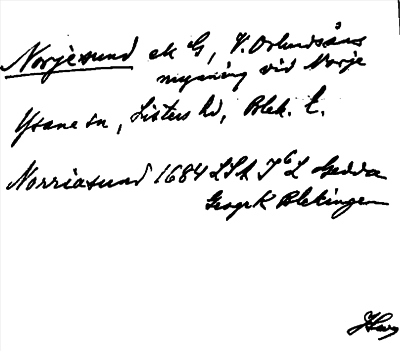 Norjesund ek G, V. Orlundsåns
mynning vid Norje
Ysane sn, Listers hd, Blek. l.
Norriasund 1684 LSA Gedda
GeogrK Blekingen